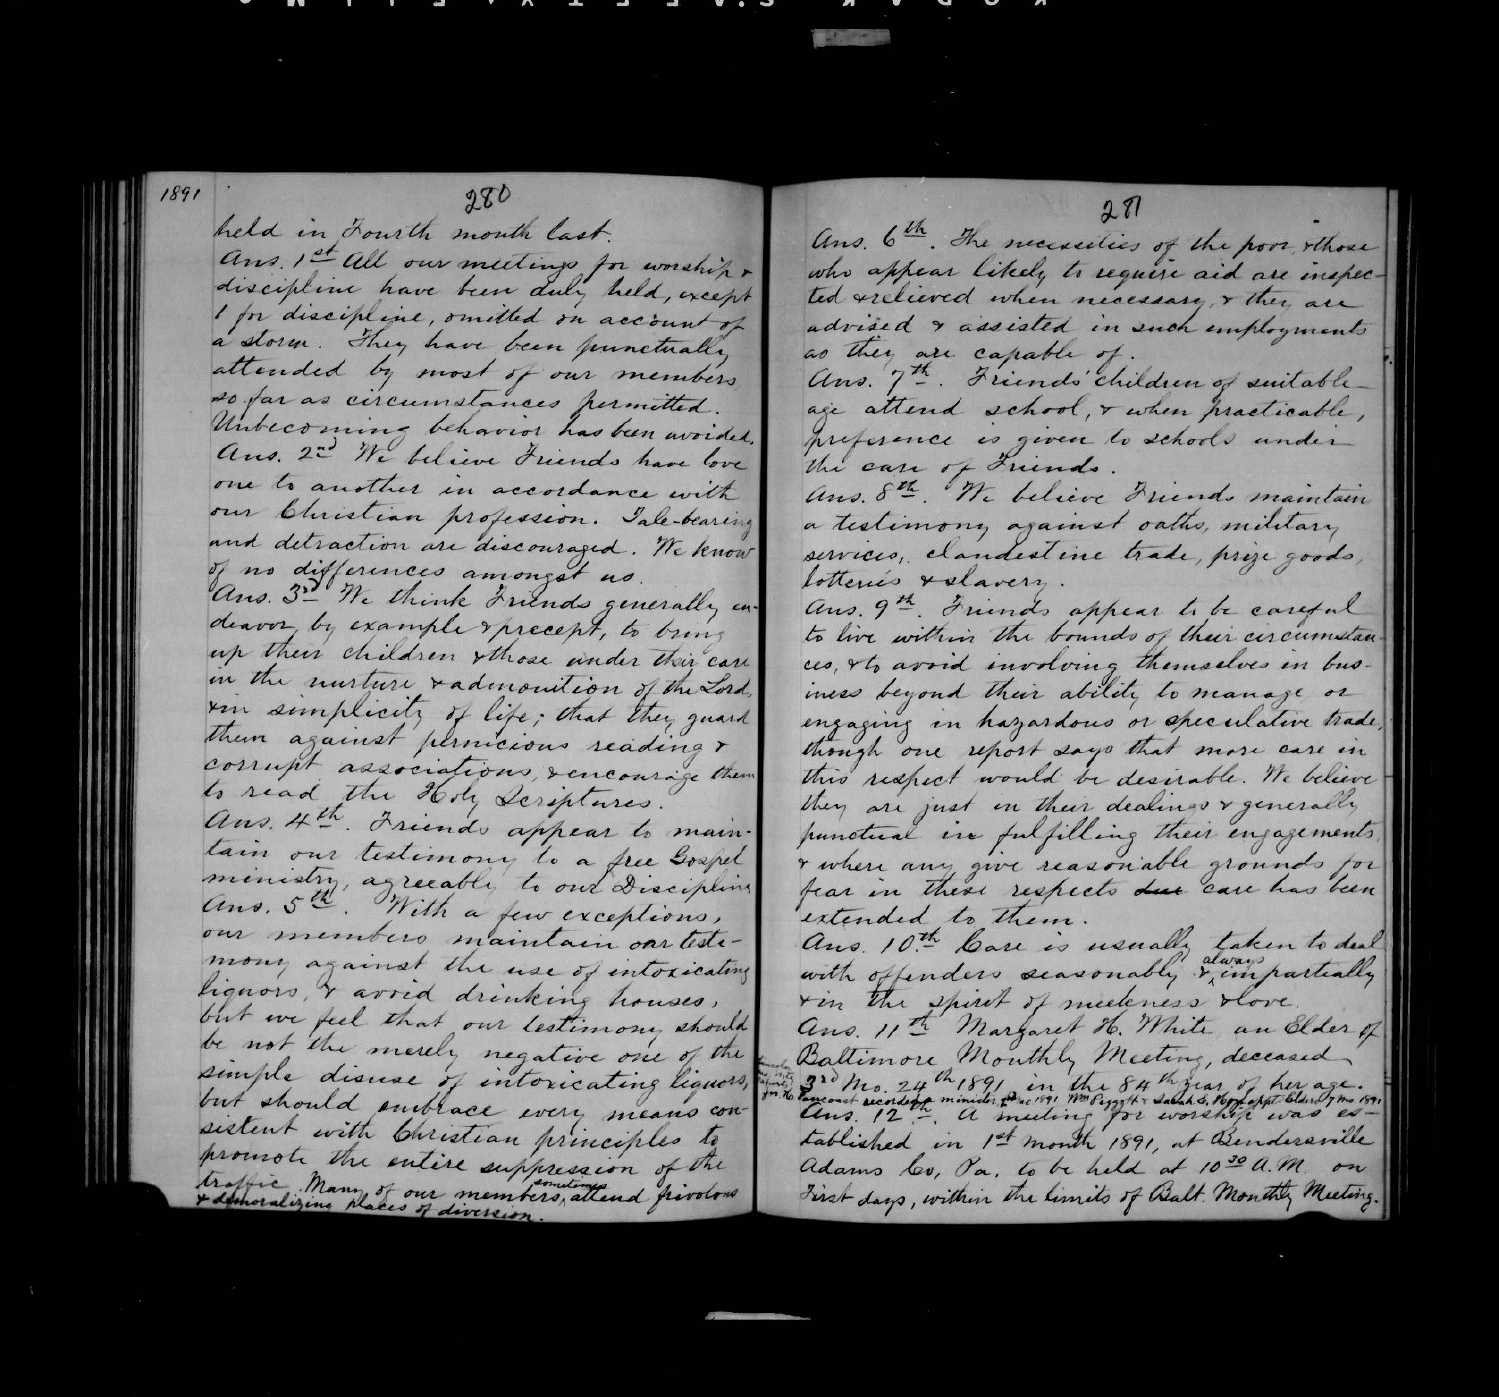 1891
280
held in Fourth month last.
Ans. 1st All our meetings for worship &
discipline have been duly held, except
1 for discipline, omitted on account of
a storm. They have been punctually
attended by most of our members,
so far as circumstances permitted.
Unbecoming behavior has been avoided.
Ans. 2nd We believe Friends have love
one to another in accordance with
our Christian profession. Tale-bearing
and detraction are discouraged. We know
of no differences amongst us.
Ans. 3rd We think Friends generally en-
deavor, by example & precept, to bring
up their children & those under their care
in the nurture & admonition of the Lord,
& in simplicity of life; that they guard
them against pernicious reading &
corrupt associations, & encourage them
to read the Holy Scriptures.
Ans. 4th. Friends appear to main-
tain our testimony to a free Gospel
ministry, agreeably to our Discipline
Ans. 5th. With a few exceptions,
our members maintain our testi-
mony against the use of intoxicating
liquors, & avoid drinking houses,
but we feel that our testimony should
be not the merely negative one of the
simple disuse of intoxicating liquors,
but should embrace every means con-
sistent with Christian principles to
promote the entire suppression of the
traffic. Many of our members, sometimes attend frivolous
& demoralizing places of diversion.
281
Ans. 6th. The necessities of the poor, & those
who appear likely to require aid are inspec-
ted & relieved when necessary, & they are
advised & assisted in such employments
as they are capable of.
Ans. 7th. Friends' children of suitable
age attend school, & when practicable,
preference is given to schools under
the care of Friends.
Ans. 8th. We believe Friends maintain
a testimony against oaths, military
services, clandestine trade, prize goods,
lotteries & slavery.
Ans. 9th. Friends appear to be careful
to live within the bounds of their circumstan-
ces, & to avoid involving themselves in bus-
iness beyond their ability to manage or
engaging in hazardous or speculative trade,
though one report says that more care in
this respect would be desirable. We believe
they are just in their dealings & generally
punctual in fulfilling their engagements,
& where any give reasonable grounds for
fear in these respects due care has been
extended to them.
Ans. 10th. Care is usually taken to deal
with offenders seasonably & always impartially
& in the spirit of meekness & love.
Ans. 11th Margaret H. White an Elder of
Baltimore Monthly Meeting, deceased
3rd Mo. 24th 1891 in the 84th year of her age.
Pancoast recorded minister 1891 Wm Piggott & Sarah S. appt Elders 7 Mo. 1891
Ans. 12th. A meeting for worship was es-
tablished in 1st month 1891, at Bendersville
Adams Co, Pa. to be held at 10 30 A.M. on
First days, within the limits of Balt. Monthly Meeting.